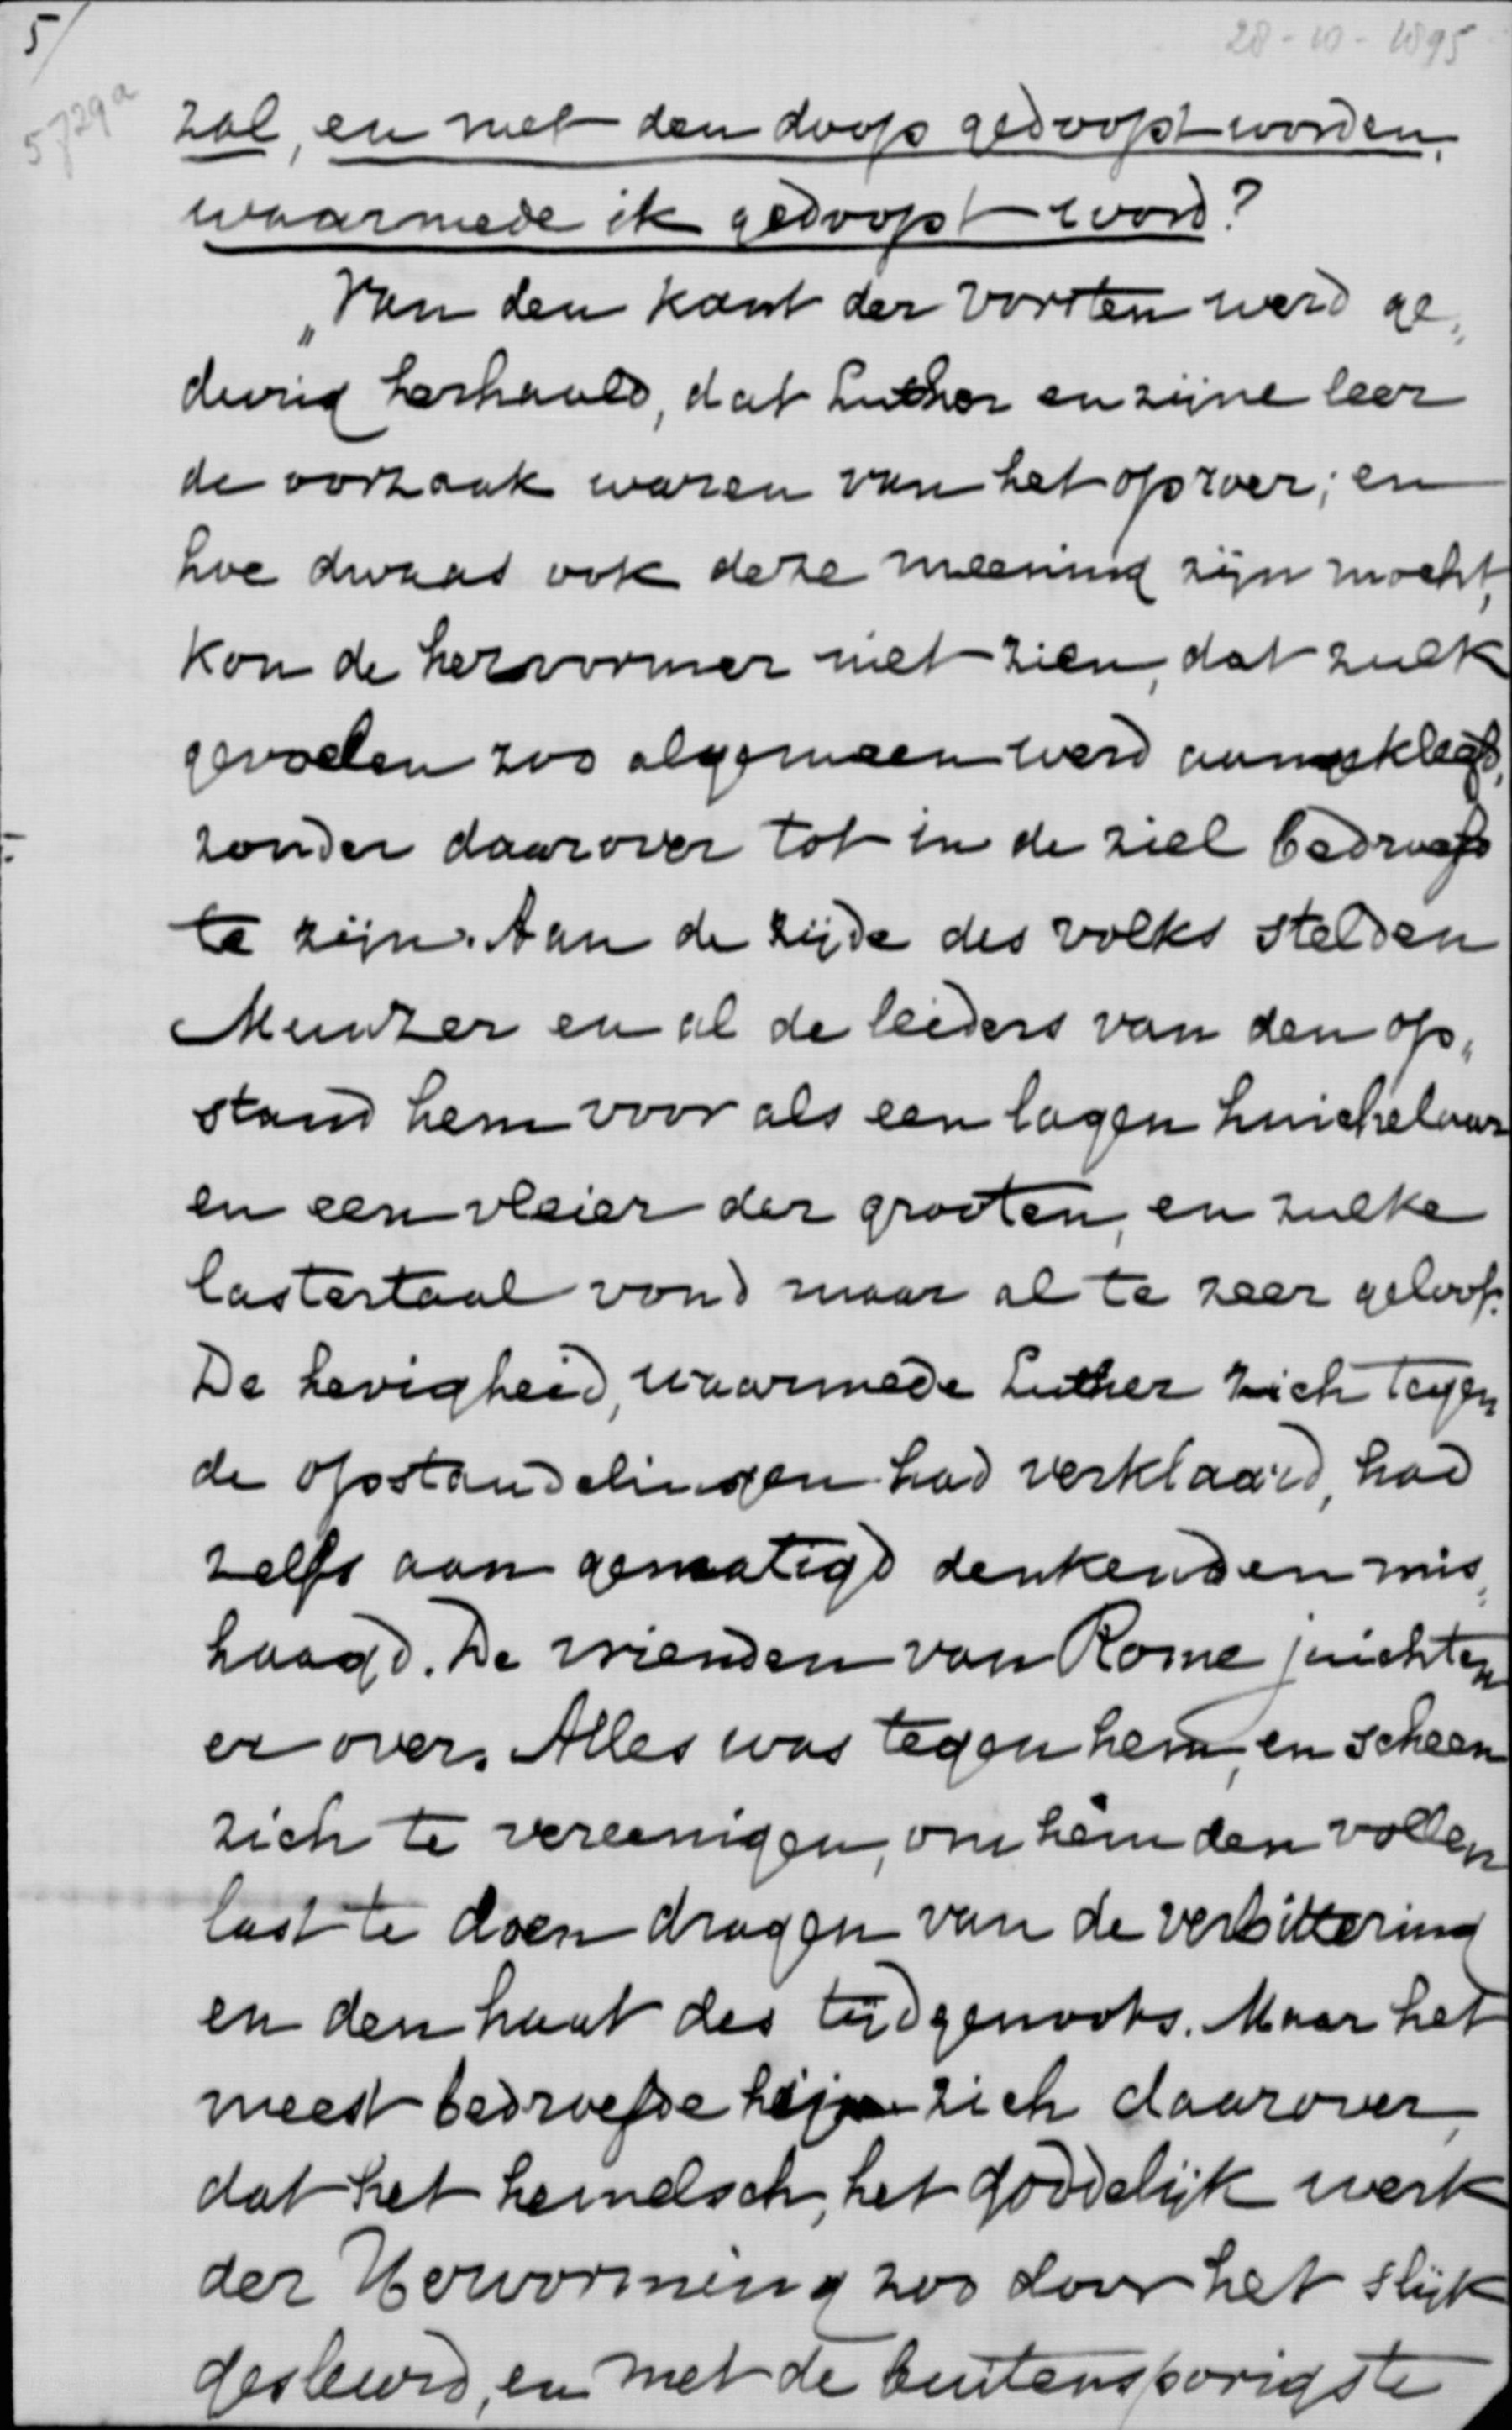 5/
28-10-1895
5729a
zal, en met den doop gedoopt worden,
waarmede ik gedoopt word?
„Van den kant der vorsten werd ge„
durig herhaald, dat Luther en zijne leer
de oorzaak waren van het oproer; en
hoe dwaas ook deze meening zijn mocht,
kon de hervormer niet zien, dat zulk
gevoelen zoo algemeen werd aangekleefd,
zonder daarover tot in de ziel bedroefd
te zijn. Aan de zijde des volks stelden
Munzer en al de leiders van den op„
stand hem voor als een lagen huichelaar
en een vleier der grooten, en zulke
lastertaal vond maar al te zeer geloof.
De hevigheid, waarmede Luther zich tegen
de opstandelingen had verklaard, had
zelfs aan gematigd denkenden mis„
haagd. De vrienden van Rome juichten
er over. Alles was tegen hem, en scheen
zich te vereenigen, om hem den vollen
last te doen dragen van de verbittering
en den haat des tijdgenoots. Maar het
meest bedroefde hij zich daarover,
dat het hemelsch, het goddelijk werk
der Hervorming zoo door het slijk
gesleurd, en met de buitensporigste